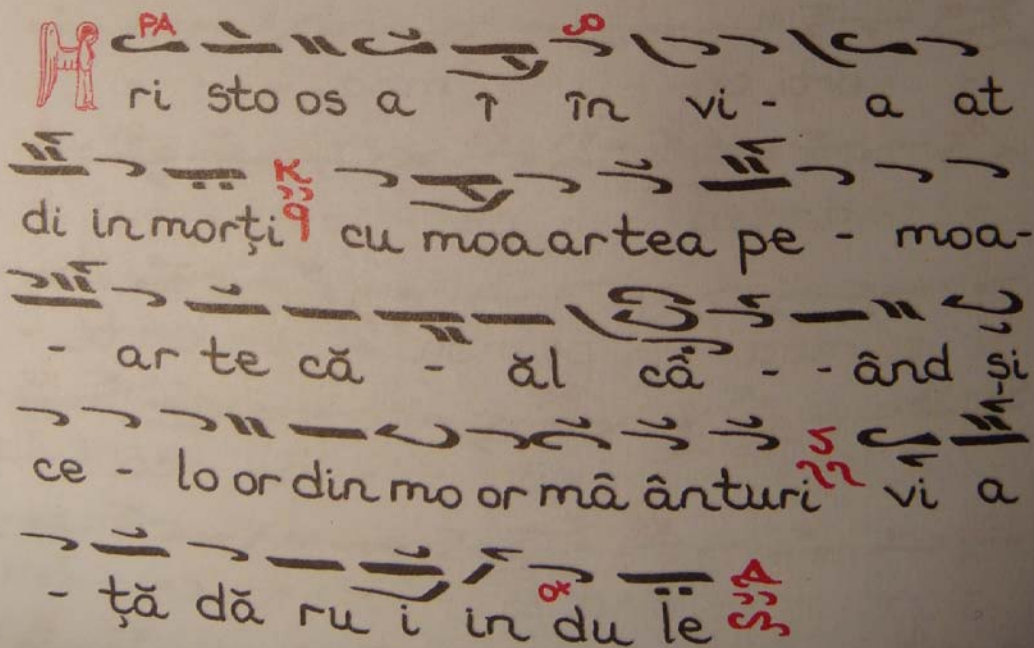 PA
Hri sto os a î în vi - a at
di in morți cu moa ar tea pe - moa-
- ar te că - ăl câ - - ând și
ce - lo or din mo or mâ ânturi vi a
- ță dă ru i in du le